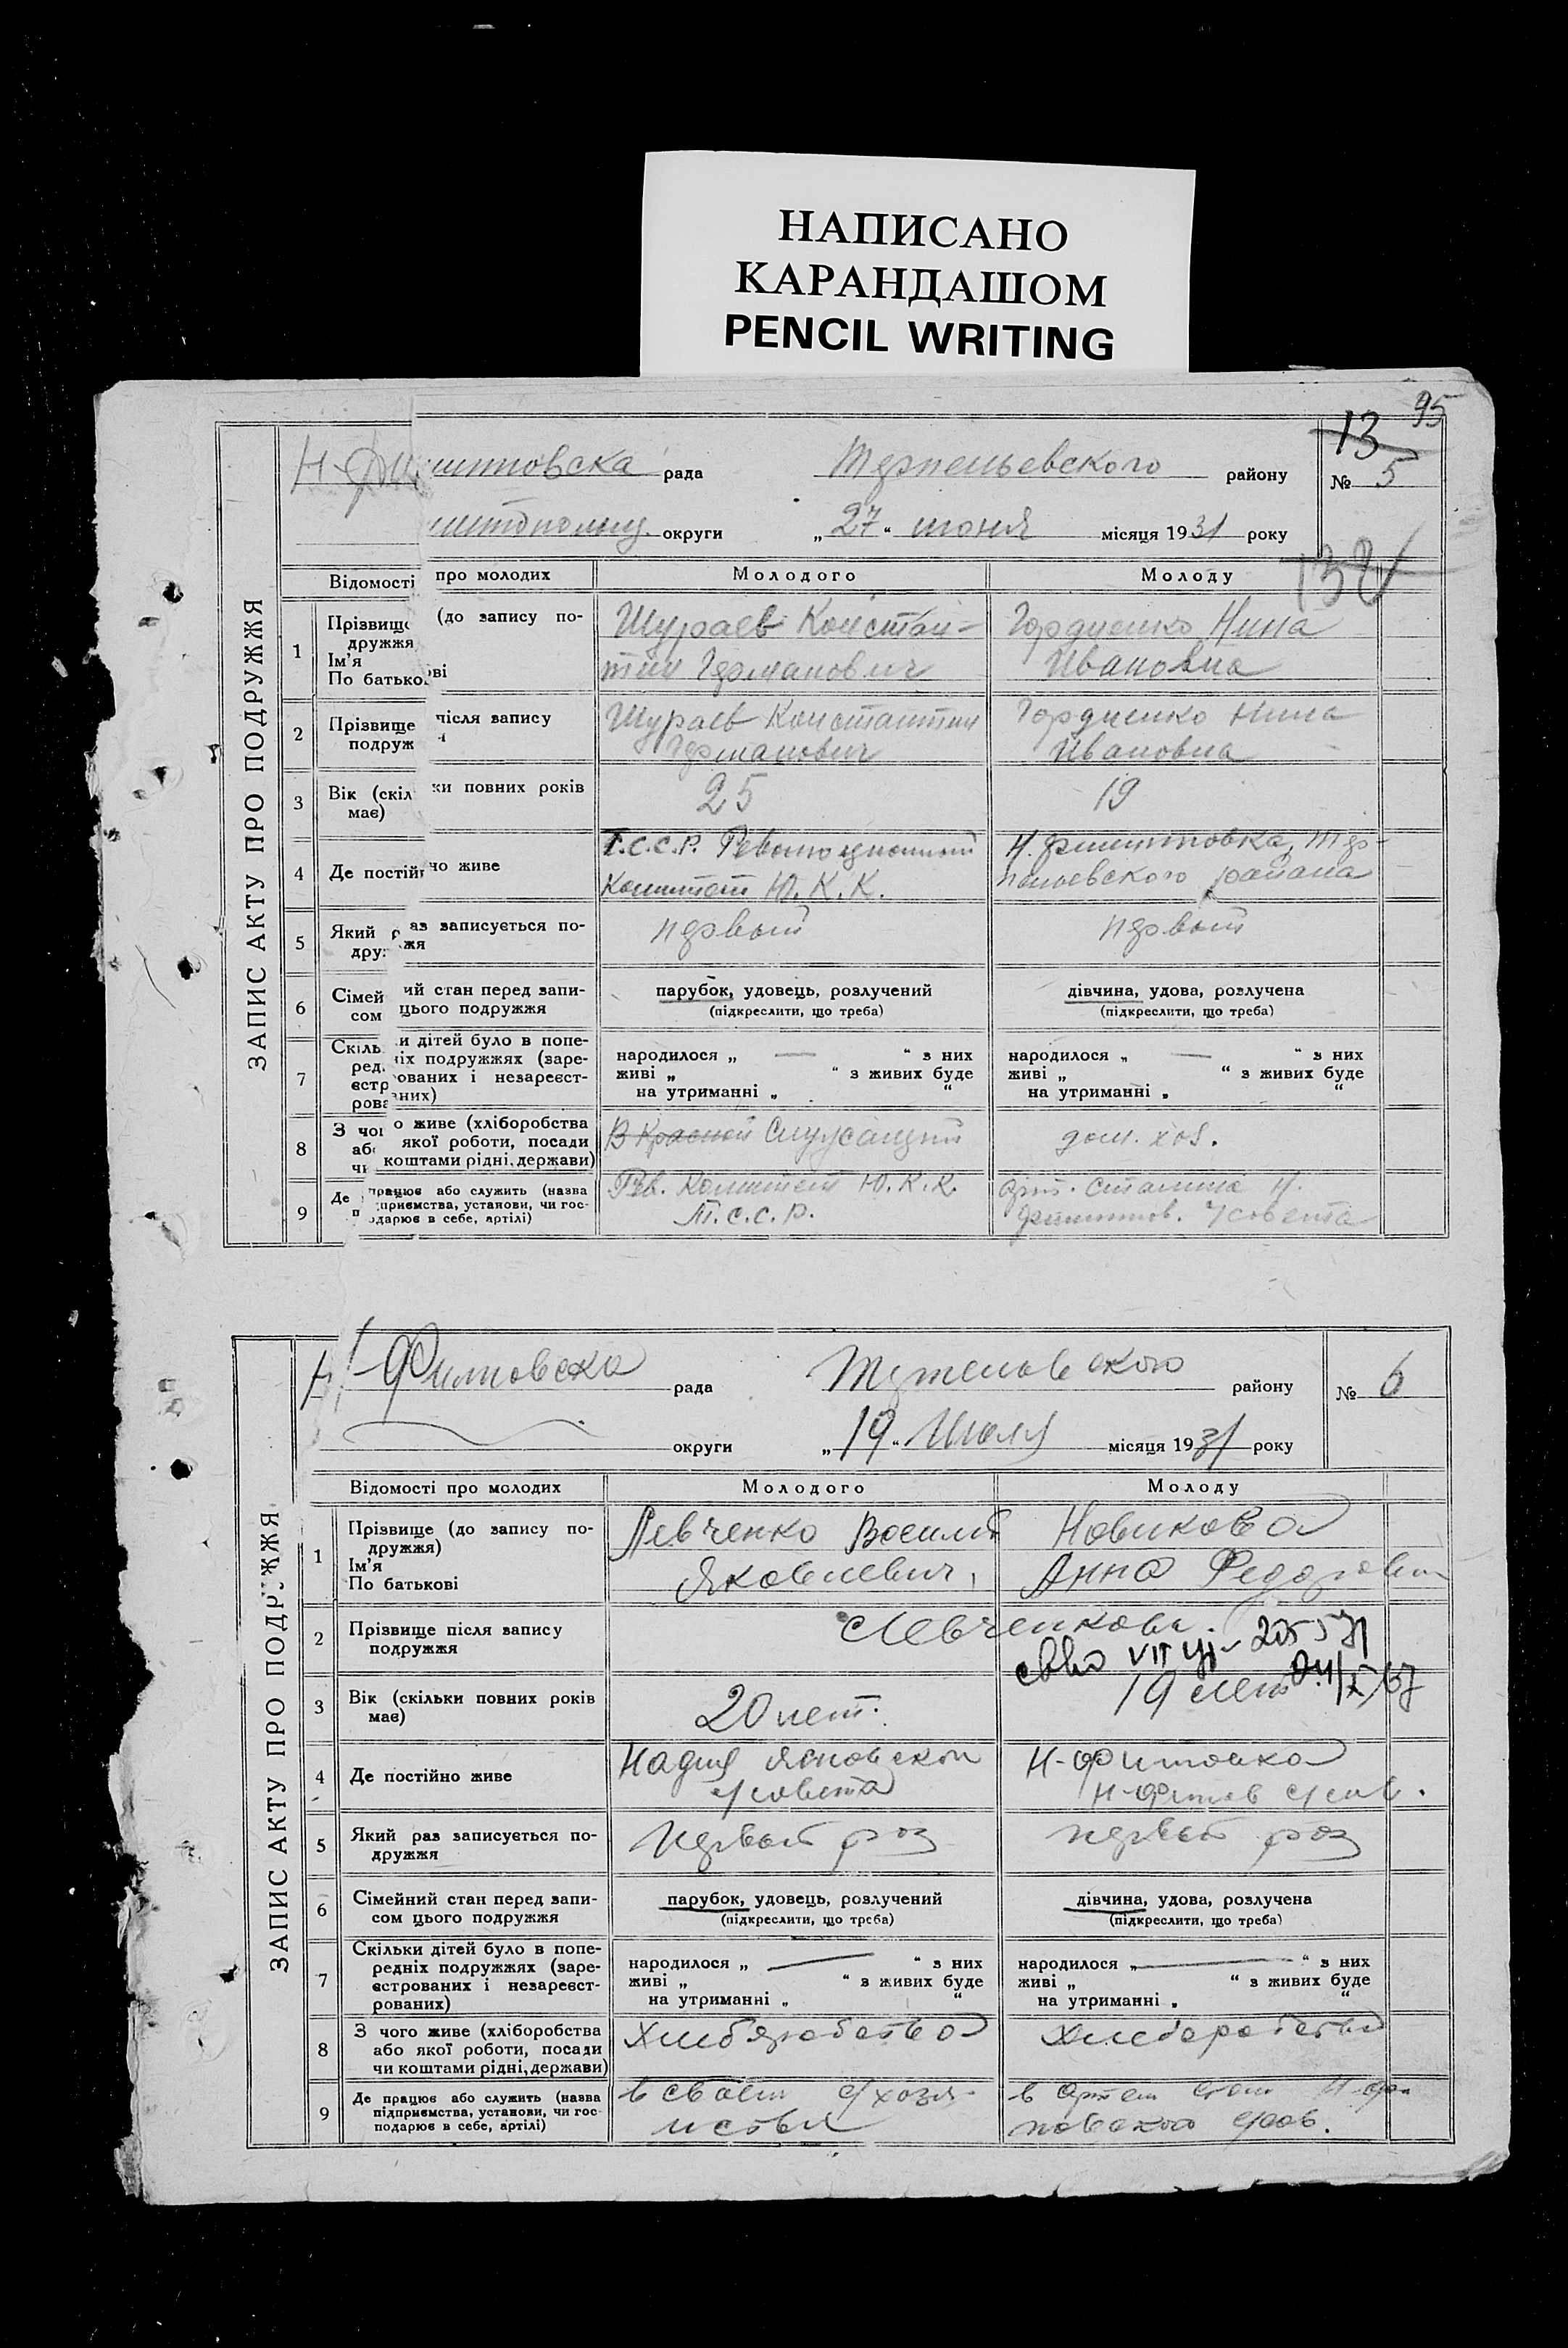 НАПИСАНО
КАРАНДАШОМ
PENCIL WRITING
95
13
ЗАПИС АКТУ ПРО ПОДРУЖЖЯ
рада района району № 5
округи „27“ июня місяця 1931 року
Відомості про молодих Молодого Молоду
1 Прізвище (до запису по-
дружжя
Ім'я
По батькові
Шураев Констан-
тин Германович
Гордиенко Нина
Ивановна
2 Прізвище після запису
подруж
Шураев Константин
Германович
Гордиенко Нина
Ивановна
3 Вік (скільки повних років
має)
25
19
4 Де постійно живе
Т.С.С.Р. Революционный
Комитет Ю.К.К.
5 Який раз записується по-
дружжя
первый
первый
6 Сімейний стан перед запи-
сом цього подружжя
парубок, удовець, розлучений
(підкреслити, що треба)
дівчина, удова, розлучена
(підкреслити, що треба)
7 Скільки дітей було в попе-
редніх подружжях (заре-
естрованих і незареєст-
рованих)
народилося „ — “ з них
живі „ “ з живих буде
на утриманні „ “
народилося „ — “ з них
живі „ “ з живих буде
на утриманні „ “
8 З чого живе (хліборобства
або якої роботи, посади
чи коштами рідні, держави)
В Красной Служащий
дом. хоз.
9 Де працює або служить (назва
підприємства, установи, чи гос-
подарює в себе, артілі)
Рев. Комитет Ю.К.К.
Т.С.С.Р.
арт. Сталина Н.
с/совета
ЗАПИС АКТУ ПРО ПОДРУЖЖЯ
рада району № 6
округи „19“ Июля місяця 1931 року
Відомості про молодих Молодого Молоду
1 Прізвище (до запису по-
дружжя)
Ім'я
По батькові
Левченко Василий
Яковлевич,
Новикова
Анна Федоровна
2 Прізвище після запису
подружжя
Левченковы.
3 Вік (скільки повних років
має)
20 лет.
19 лет
4 Де постійно живе
с/совета
5 Який раз записується по-
дружжя
первый раз
первый раз
6 Сімейний стан перед запи-
сом цього подружжя
парубок, удовець, розлучений
(підкреслити, що треба)
дівчина, удова, розлучена
(підкреслити, що треба)
7 Скільки дітей було в попе-
редніх подружжях (заре-
єстрованих і незареєст-
рованих)
народилося „ — “ з них
живі „ “ з живих буде
на утриманні „ “
народилося „ — “ з них
живі „ “ з живих буде
на утриманні „ “
8 З чого живе (хліборобства
або якої роботи, посади
чи коштами рідні, держави)
9 Де працює або служить (назва
підприємства, установи, чи гос-
подарює в себе, артілі)
в своем с/хозя-
йстви